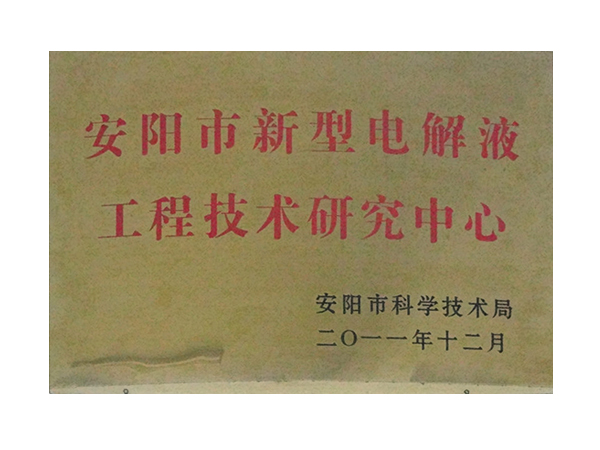 安阳市新型电解液
工程技术研究中心
安阳市科学技术局
二〇一一年十二月